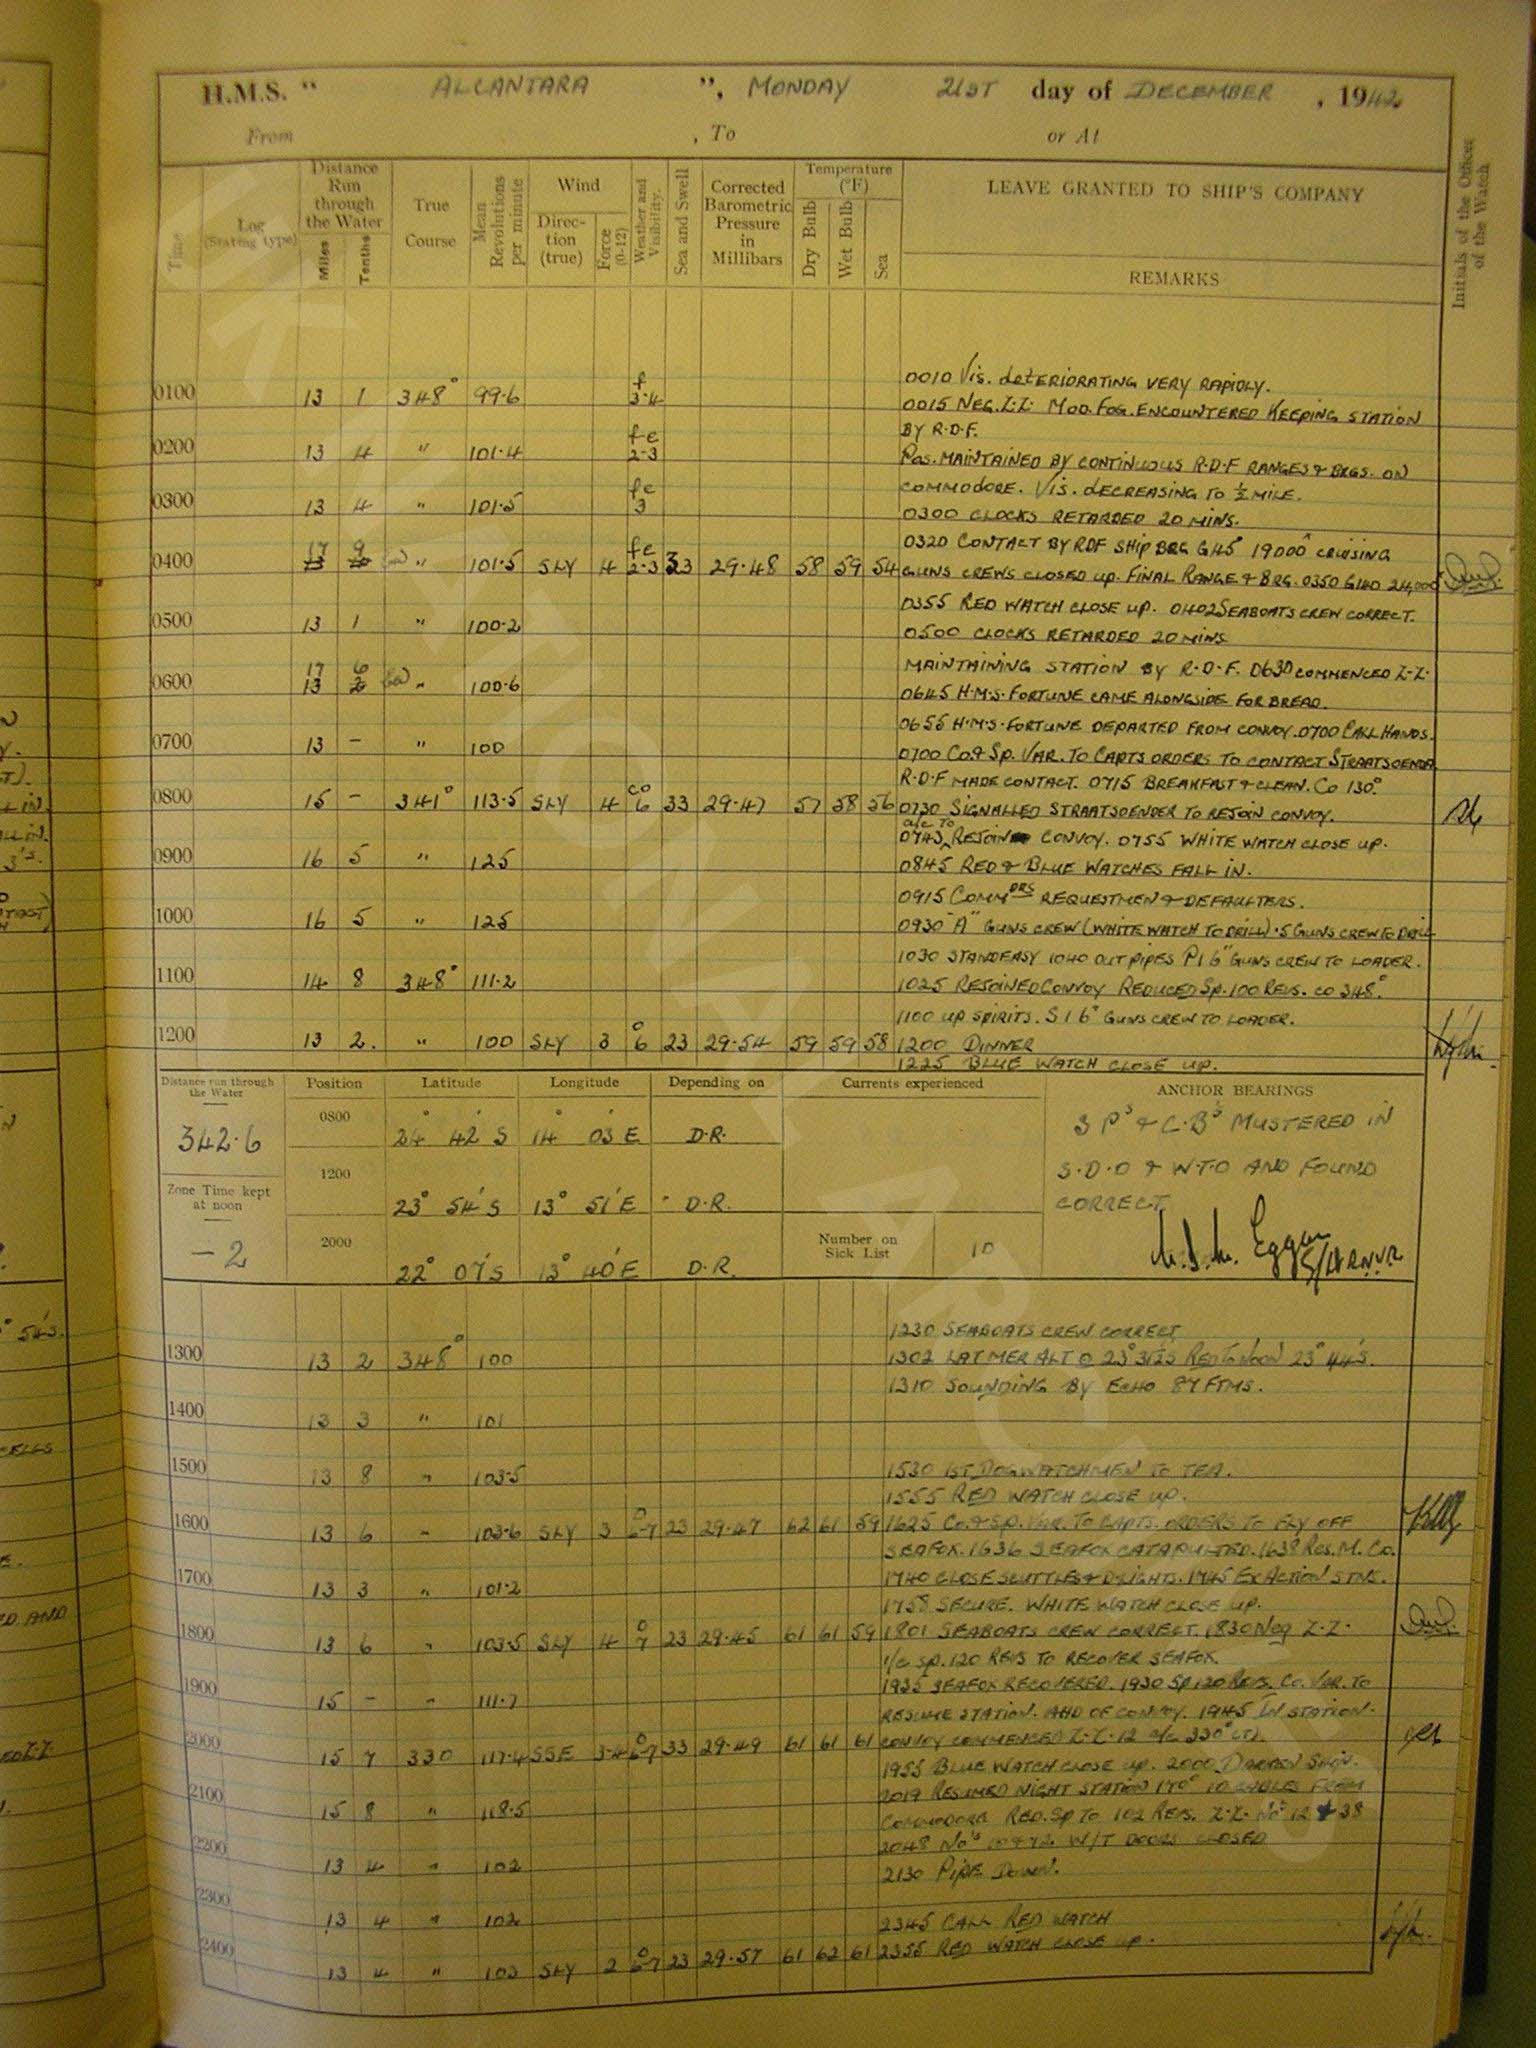 H.M.S. " ALCANTARA ", MONDAY 21ST day of DECEMBER , 1942
From , To or At
Time
Log (Stating type)
Distance Run through the Water
Miles
Tenths
True Course
Mean Revolutions per minute
Wind
Direction (true)
Force (0-12)
Weather and Visibility.
Sea and Swell
Corrected Barometric Pressure in Millibars
Temperature (°F)
Dry Bulb
Wet Bulb
Sea
LEAVE GRANTED TO SHIP'S COMPANY
REMARKS
Initials of the Officer of the Watch
0010 Vis. deteriorating very rapidly.
0100 13 1 348° 99.6 f 3.4
0015 Neg. Z.Z. Mod. Fog. encountered keeping station
by R.D.F.
0200 13 4 " 101.4 fe 2-3
Pos. maintained by continuous R.D.F ranges & brgs. on
Commodore. Vis. decreasing to ½ mile.
0300 13 4 " 101.5 fe 3
0300 clocks retarded 20 mins.
0320 contact by RDF ship brg G145° 19000ˣ cruising
0400 17 9 " 101.5 SLY 4 fe 2-3 33 29.48 58 59 54
guns crews closed up. Final range & brg. 0350 G140 24,000ˣ
0355 Red watch close up. 0402 Seaboats crew correct.
0500 13 1 " 100.2
0500 clocks retarded 20 mins
Maintaining station by R.D.F. 0630 commenced Z.Z.
0600 17 6 13 2 " 100.6
0645 H.M.S. Fortune came alongside for bread.
0655 H.M.S. Fortune departed from convoy. 0700 Call Hands.
0700 13 - " 100
0700 Co. & Sp. Var. to Capts orders to contact Straatsoenda
R.D.F made contact. 0715 Breakfast & clean. Co 130°
0800 15 - 341° 113.5 SLY 4 co 6 33 29.47 57 58 56
0730 Signalled Straatsoender to rejoin convoy.
0743 a/c to rejoin convoy. 0755 White watch close up.
0900 16 5 " 125
0845 Red & Blue watches fall in.
0915 Commdrs requestmen & defaulters.
1000 16 5 " 125
0930 "A" guns crew (White watch to drill). 5 guns crew to drill
1030 Standeasy 1040 out pipes P1 6" guns crew to loader.
1100 14 8 348° 111.2
1025 Rejoined convoy reduced sp. 100 revs. co 348°.
1100 up spirits. S1 6" guns crew to loader.
1200 13 2. " 100 SLY 3 o 6 23 29.54 59 59 58
1200 Dinner
1225 Blue watch close up.
Distance run through the Water
342.6
Zone Time kept at noon
-2
Position Latitude Longitude Depending on
0800 24° 42'S 14° 03'E D.R.
1200 23° 54'S 13° 51'E D.R.
2000 22° 07'S 13° 40'E D.R.
Currents experienced
Number on Sick List 10
ANCHOR BEARINGS
S P's & C.B's mustered in
S.D.O & W.T.O and found
correct
S/Lt R.N.V.R
1230 Seaboats crew correct
1300 13 2 348° 100
1302 Lat Mer Alt 23° Red to Noon 23° 44'S.
1310 Sounding by Echo 87 Ftms.
1400 13 3 " 101
1500 13 8 " 103.5
1530 1st Dogwatchmen to tea.
1555 Red watch close up.
1600 13 6 " 103.6 SLY 3 o 6-7 23 29.47 62 61 59
1625 Co. & sp. Var. to Capts. orders to fly off
Seafox. 1636 Seafox catapulted. 1638 Res. M. Co.
1700 13 3 " 101.2
1740 close scuttles & D-lights. 1745 Ex Action stns.
1758 Secure. White watch close up.
1800 13 6 " 103.5 SLY 4 o 7 23 29.45 61 61 59
1801 Seaboats crew correct. 1830 Neg Z.Z.
I/c sp. 120 revs to recover Seafox.
1900 15 - " 111.7
1935 Seafox recovered. 1930 Sp. 120 Revs. Co. Var. to
resume station. Ahd of convoy. 1945 In station.
2000 15 7 330 117.4 SSE 3-4 o 6-7 33 29.49 61 61 61
convoy commenced Z.Z. 12 a/c 330° (T).
1955 Blue watch close up. 2000 Darken Ship.
2019 Resumed night station 170° 10 cables from
2100 15 8 " 118.5
Commodore Red. Sp to 102 Revs. Z.Z. No's 12 & 38
2048 No's 10 & 72 W/T doors closed
2200 13 4 " 102
2130 Pipe Down.
2300 13 4 " 102
2345 Call Red Watch
2400 13 4 " 102 SLY 2 o 6-7 23 29.57 61 62 61
2355 Red watch close up.